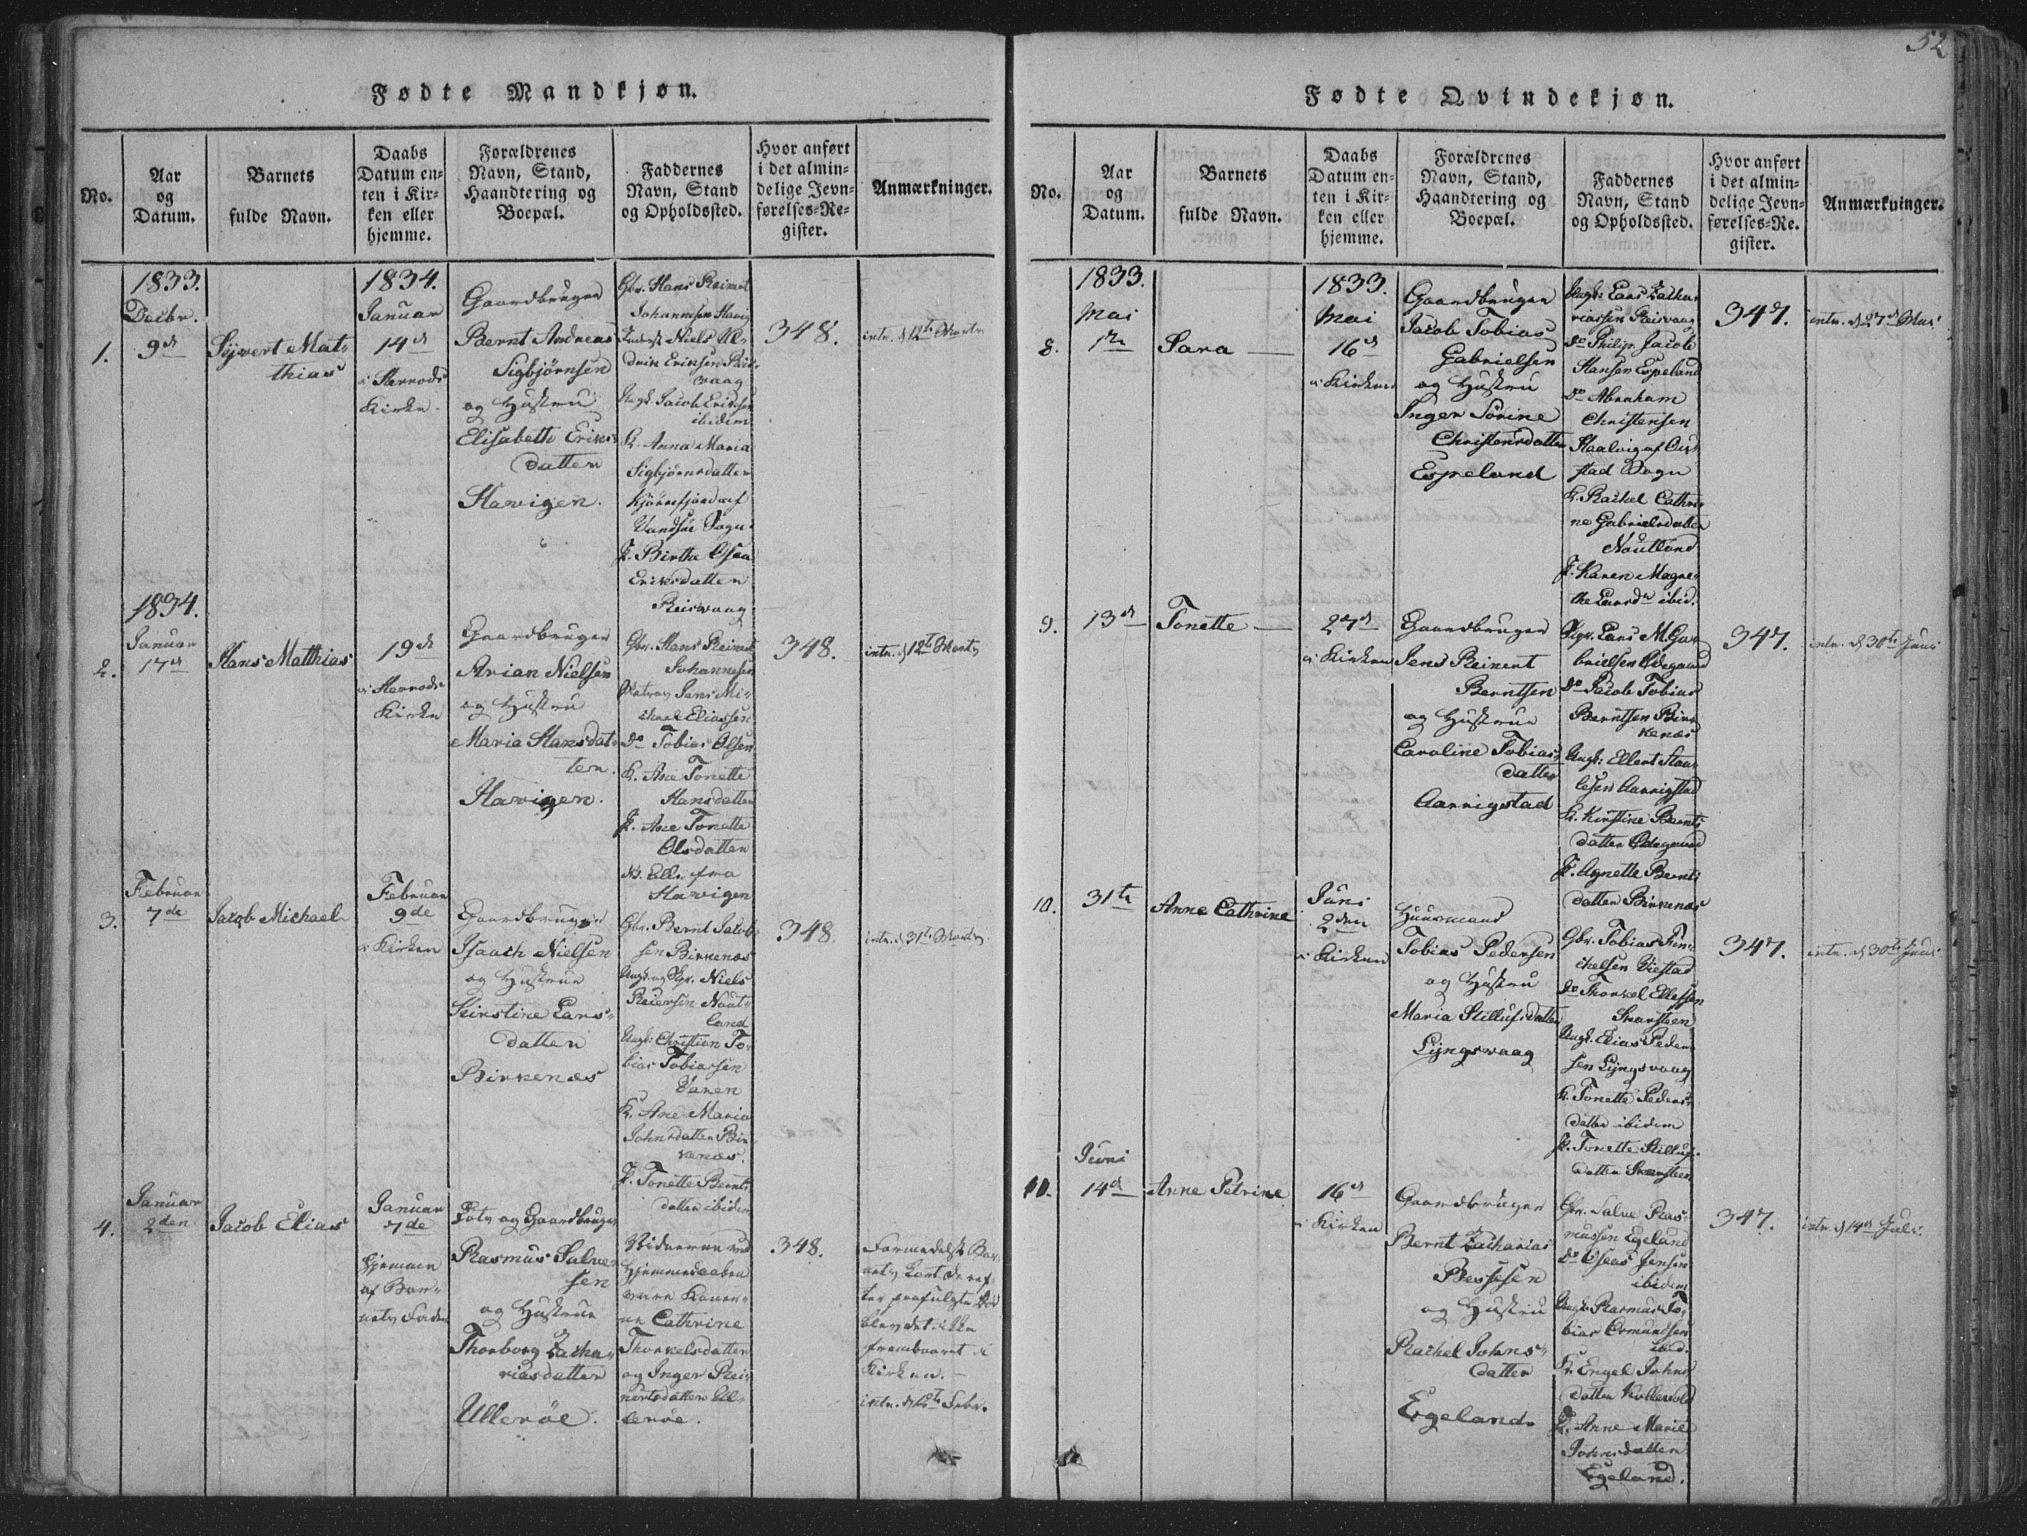 52
Fødte Mandkjøn.
No.
Aar
og
Datum.
Barnets
fulde Navn.
Daabs
Datum en-
ten i Kir-
ken eller
hjemme.
Forældrenes
Navn, Stand,
Haandtering og
Boepæl.
Faddernes
Navn, Stand
og Opholdssted.
Hvor anført
i det almin-
delige Jevn-
førelses-Re-
gister.
Anmærkninger.
1.
1833.
Decbr.
9de
Syvert Mat-
thias
1834.
Januar
14de
i Herrods
Kirke.
Gaardbruger
Bernt Andreas
Sigbjørnsen
og Hustru
Elisabeth Eriks-
datter
Havigen.
Gbr. Hans Reinert
Johannesen Havig
Niels
drik Eriksen Reis-
vaag
Ungk. Jacob Eriksen
ibidem
K. Anna Maria
Sigbjørnsdatter
Kjørrefjord af
Vandsøe Sogn
P. Birthe Osea
Eriksdatter
Reisvaag
348.
intr. d 12te Marts
2.
1834.
Januar
17de
Hans Matthias
19de
i Herrods
Kirke
Gaardbruger
Arian Nielsen
og Hustru
Maria Hansdat-
ter.
Havigen.
Gbr. Hans Reinert
Johannesen
Matros Jens Mi-
chael Eliassen
Do Tobias Olsen
K. Ane Tonette
Hansdatter
P. Ane Tonette
Olsdatter
fra
Havigen
348.
intr. d 12te Marts
3.
Februar
7de
Jacob Michael
Februar
9de
i Kirken
Gaardbruger
Isaach Nielsen
og Hustrue
Kirstine Lars-
datter
Birkenæs
Gbr. Bernt Jacob-
sen Birkenæs
Niels
Reiersen Nout-
land
Ungk. Christian To-
bias Tobiassen
Varen
K. Ane Maria
Johnsdatter Bir-
kenæs.
P. Tonette Bernts
datter ibidem
348.
intr. d 31te Marts
4.
Januar
2den
Jacob Elias
Januar
7de
hjemme
af Bar-
nets Fader
og Gaardbruger
Rasmus Salve-
sen
og Hustrue
Thorborg Zacha-
riasdatter
Ullerøe.
Vidnerne ved
Hjemmedaaben
vare Karen-
ne Cathrine
Thorkelsdatter
og Inger Rei-
nertsdatter Ul-
lerøe.
348.
Formedelst Bar-
nets kort deref-
ter paafulgte Død
blev det ikke
frembaaret i
Kirken.
intr. d 12te Febr.
Fødte Qvindekjøn.
No.
Aar
og
Datum.
Barnets
fulde Navn.
Daabs
Datum en-
ten i Kir-
ken eller
hjemme.
Forældrenes
Navn, Stand,
Haandtering og
Boepæl.
Faddernes
Navn, Stand
og Opholdssted.
Hvor anført
i det almin-
delige Jevn-
førelses-Re-
gister.
Anmærkninger.
8.
1833.
Mai
1te
Sara
1833.
Mai
16de
i Kirken
Gaardbruger
Jacob Tobias
Gabrielsen
og Hustru
Inger Sørine
Christensdatter
Espeland
Ungk. Lars Zacha-
riassen Reisvaag
Do Philip Jacob
Hansen Espeland
Do Abraham
Christensen
Haalvig af Oud-
stad Sogn
K. Rachel Cathri-
ne Gabrielsdatter
Noutland
P. Karen Magre-
the Larsdr ibid.
347.
intr. d 27de Mai
9.
13de
Tonette
27de
i Kirken
Gaardbruger
Jens Reinert
Berntsen
og Hustrue
Caroline Tobias-
datter
Aarrigstad
Lars M. Ga-
brielsen Ødegaard
Do Jacob Tobias
Berntsen Birk-
kenæs
Ungk. Ellert Staa-
lesen Aarrigstad
K. Kirstine Bernts
datter Ødegaard
P. Agnette Bernts
datter Birkenæs
347.
intr. d 30te Juni
10.
31te
Anne Cathrine
Juni
2den
i Kirken
Huusmand
Tobias Pedersen
og Hustru
Maria Stillufsdatter
Lyngsvaag
Gbr. Tobias Fen-
ckelsen Viestad
Do Thorkel Ellefsen
Skarsteen
Ungk. Elias Peder-
sen Lyngsvaag
K. Tonette Peders-
datter ibidem
P. Tonette Stillufs
datter Skarsteen
347.
intr. d 30te Juni
10.
Juni
14de
Anne Petrine
16de
i Kirken
Gaardbruger
Bernt Zacharias
Bessesen
og Hustru
Rachel Johns-
datter
Egeland.
Gbr. Salve Ras-
mussen Egeland
Do Oseas Jensen
ibidem
Ungk. Rasmus To-
bias Osmundsen
ibid.
K. Engel Johns
datter Kollevold
P. Anne Marie
Johnsdatter
Egeland.
347.
intr. d 14de Juli.